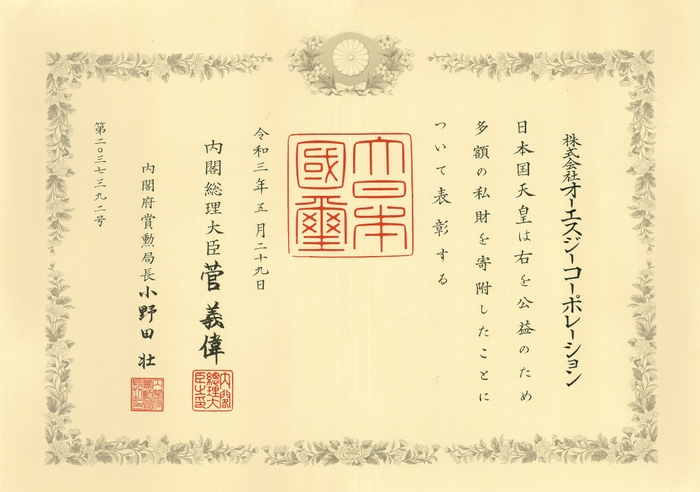 株式会社オーエスジーコーポレーション
日本国天皇は右を公益のため
多額の私財を寄附したことに
ついて表彰する
大日本
國璽
令和三年五月二十九日
内閣総理大臣菅義偉
内閣総理大臣之印
内閣府賞勲局長小野田壮
第二〇三七三九二号